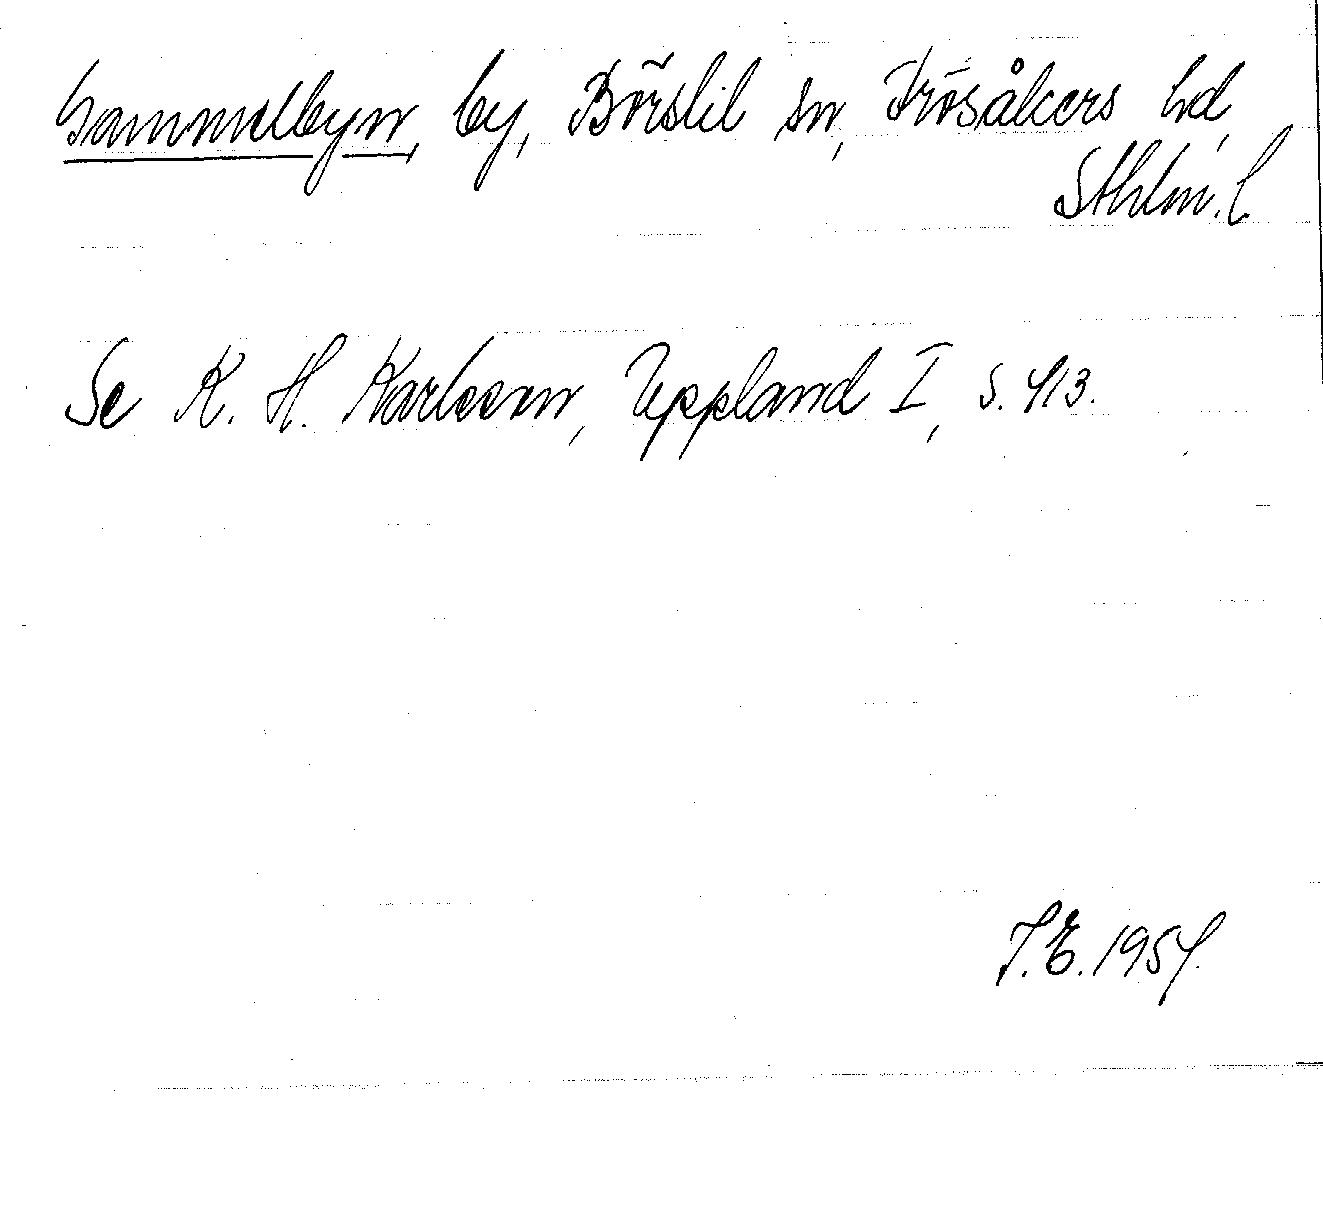 Gammelbyn, by, Börstil sn, Frösåkers hd,
Sthlm. l.
Se K. H. Karlsson, Uppland I, s. 413.
T. E. 1954.